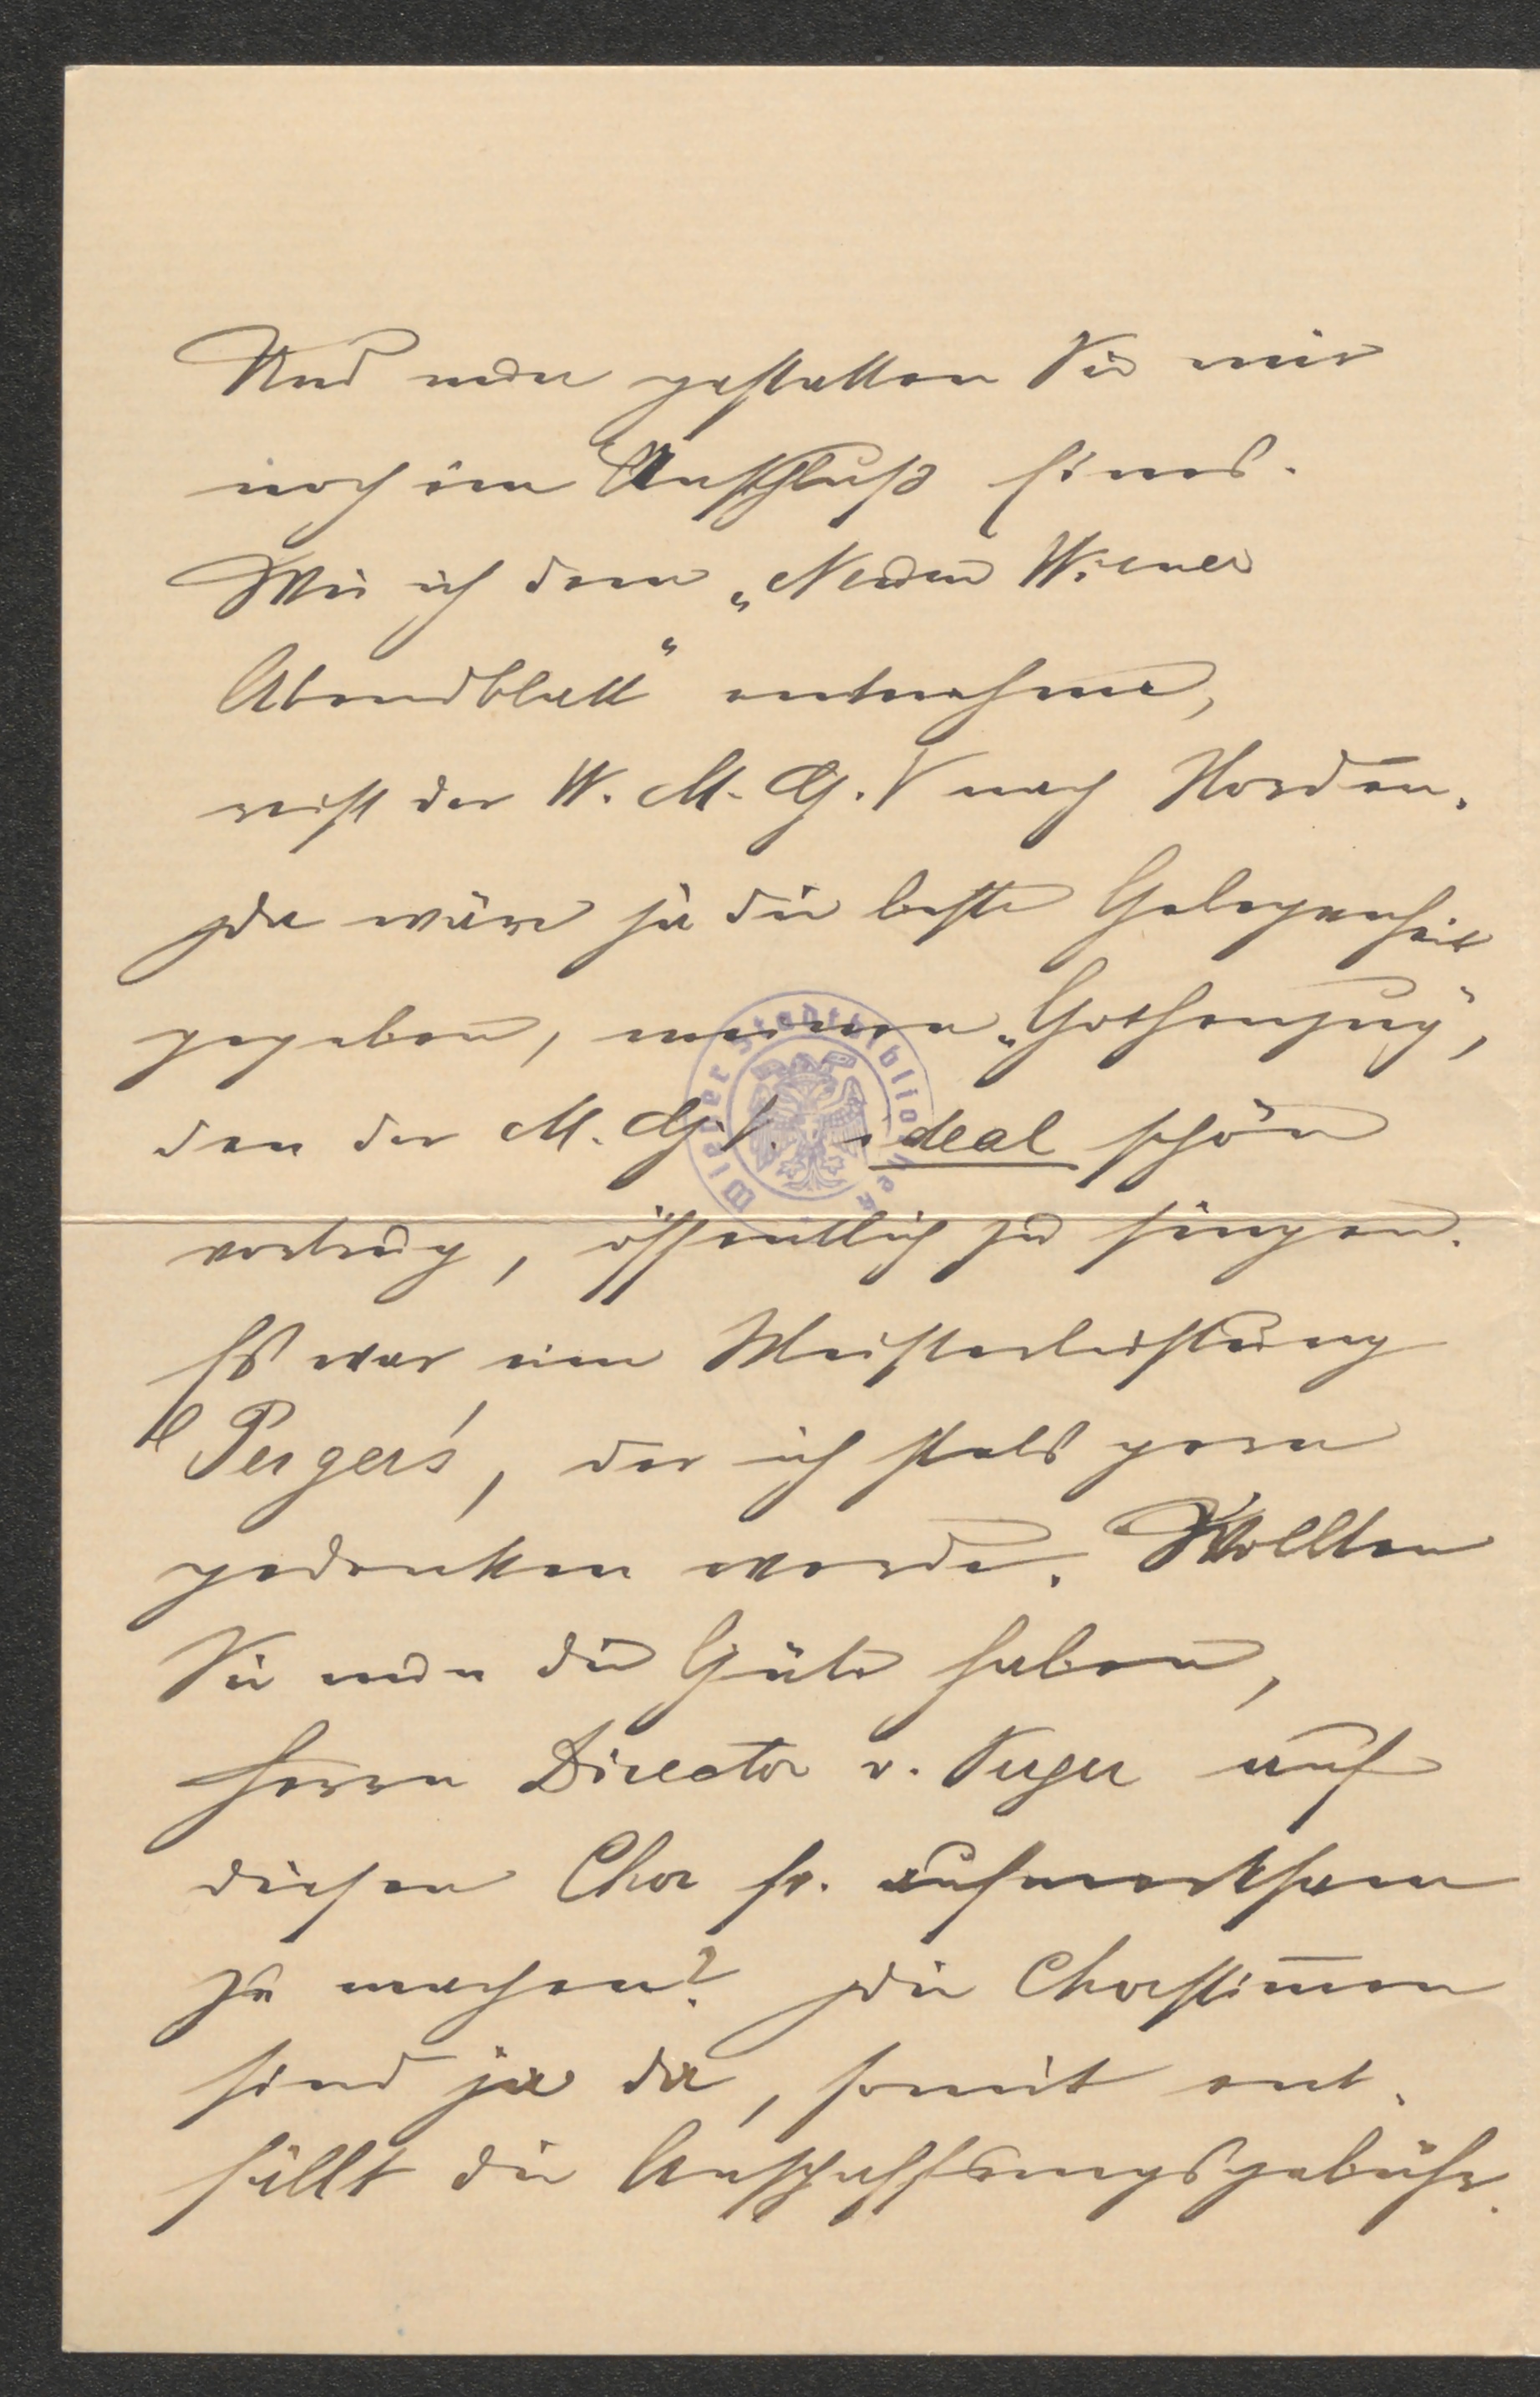 Und nun gestatten Sie mir
noch im Anschluß Eines.
Wie ich dem „Neuen Wiener
Abendblatt“ entnehme,
reist der W. M. G. V nach Norden.
Da wäre ja die beste Gelegenheit
gegeben, meinen „Gothenzug“,
den der M. G. V. ideal schön
vortrug, öffentlich zu singen.
Es war eine Meisterleistung
Perger's, der ich stets gern
gedenken werde. Wollten
Sie nun die Güte haben,
Herrn Director v. Perger auf
diesen Chor fr. aufmerksam
zu machen? Die Chorstim̄en
sind ja da, somit ent-
fällt die Anschaffungsgebühr.
Wiener Stadtbibliothek